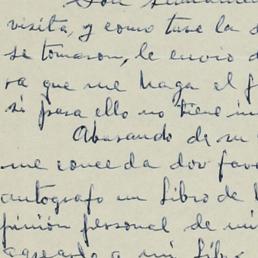 visita, y como tuve la
se tomaron, le envio
ra que me haga el f
si para ello no tiene in
Abusando de su
me conceda dos favo
autógrafo un libro de
pinión personal de mi
a mi libr